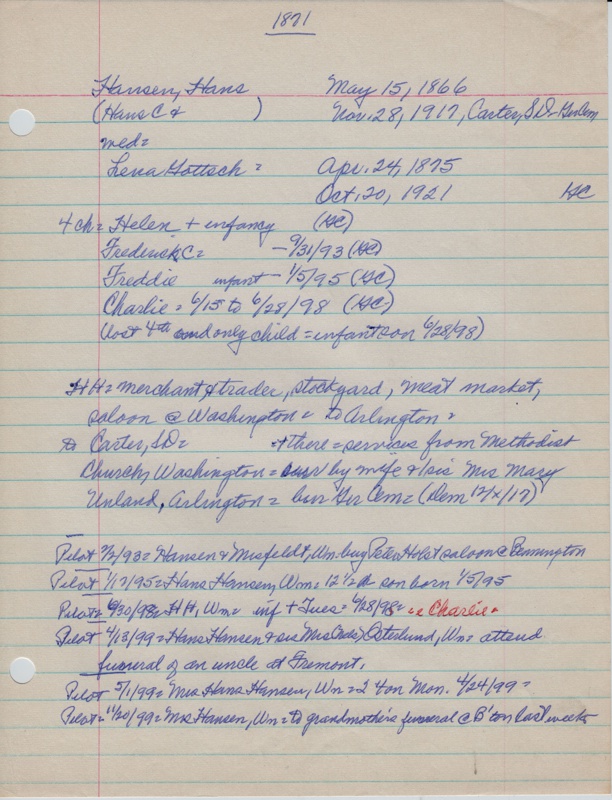 1871
Hansen, Hans May 15, 1866
(Hans C & ) Nov. 28, 1917, Carter, S.D.- Ger Cem
med=
Lena Gottsch = Apr. 24, 1875
Oct. 20, 1921 HC
4 ch = Helen + infancy (HC)
Frederick C = - 9/31/93 (HC)
Freddie infant - 1/5/95 (HC)
Charlie = 6/15 to 6/28/98 (HC)
(lost 4th and only child = infant son 6/28/98)
HH = merchant & trader, stockyard, meat market,
saloon @ Washington = to Arlington =
to Carter, SD = + there = services from Methodist
Church, Washington = by wife & sis Mrs Mary
Unland, Arlington = bur Ger Cem = (Dem 12/x/17)
Pilot 3/2/93 = Hansen & Misfeldt, Wn buy Peter Holst saloon @ Bennington
Pilot 1/17/95 = Hans Hansen, Wn = 12 1/2 lb son born 1/5/95
Pilot = 6/30/98 = HH, Wn = inf + Tues = 6/28/98 = Charlie =
Pilot 4/13/99 = Hans Hansen & sis Mrs Osterlund, Wn = attend
funeral of an uncle at Fremont.
Pilot 5/1/99 = Mrs Hans Hansen, Wn = 24 on Mon. 4/24/99 =
Pilot = 11/20/99 = Mrs Hansen, Wn = to grandmother's funeral @ B'ton last week